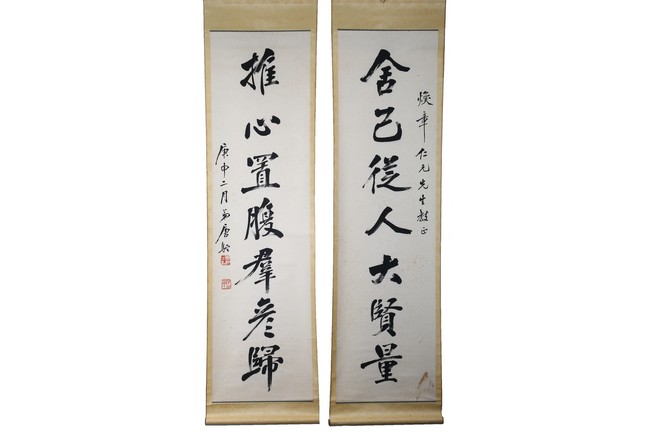 煥章仁兄先生教正
舍己從人大賢量
推心置腹羣彥歸
庚申二月弟唐駝